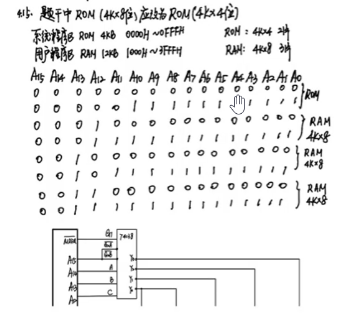 4.15. 题干中 ROM (4K×8位) 应改为 ROM (4K×4位)
系统程序区 ROM 4KB 0000H~0FFFH ROM: 4K×4 2片
用户程序区 RAM 12KB 1000H~3FFFH RAM: 4K×8 3片
A15 A14 A13 A12 A11 A10 A9 A8 A7 A6 A5 A4 A3 A2 A1 A0
0 0 0 0 0 0 0 0 0 0 0 0 0 0 0 0 ROM
0 0 0 0 1 1 1 1 1 1 1 1 1 1 1
0 0 0 1 0 0 0 0 0 0 0 0 0 0 0 0 RAM
0 0 0 1 1 1 1 1 1 1 1 1 1 1 1 1 4K×8
0 0 1 0 0 0 0 0 0 0 0 0 0 0 0 0 RAM
0 0 1 0 1 1 1 1 1 1 1 1 1 1 1 1 4K×8
0 0 1 1 0 0 0 0 0 0 0 0 0 0 0 0 RAM
0 0 1 1 1 1 1 1 1 1 1 1 1 1 1 1 4K×8
G1 74138
A15
A14 A
A13 B
C